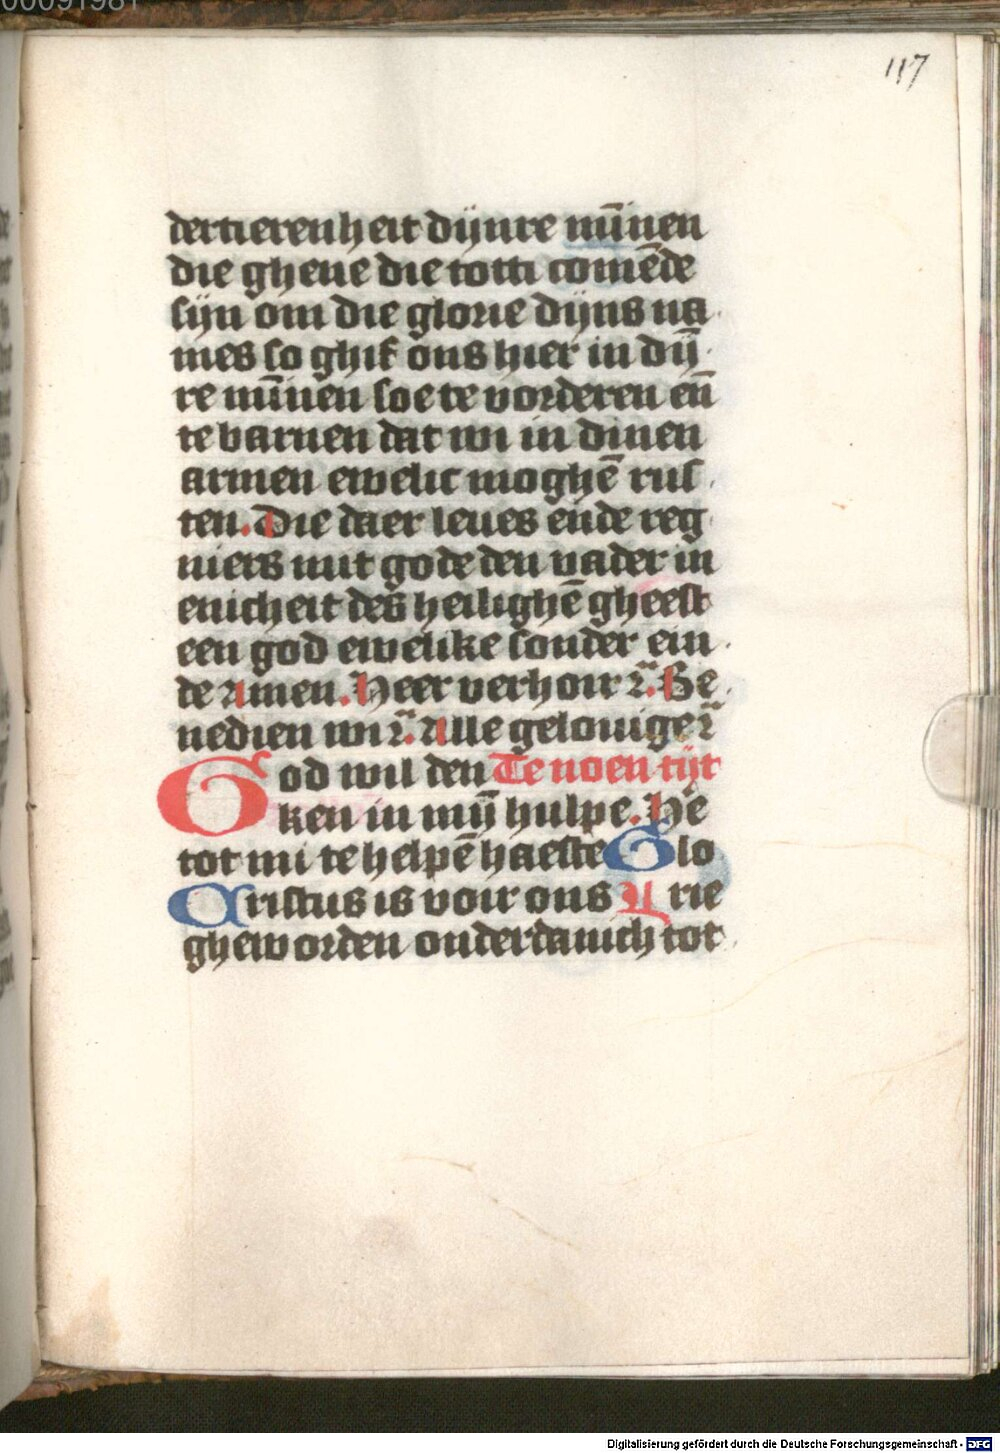 00091981
117
dertierenheit dijnre mīnen
die gheue die totti comēde
sijn om die glorie dijns na
mes so ghif ons hier in dij̄
re mīnen soe te vorderen eñ
te barnen dat wi in dinen
armen ewelic moghē rus
ten. Die daer leues ende reg
niers mit gode den vader in
enicheit des heilighē gheest
een god ewelike sonder ein
de amen. Heer verhoir r̄. Be
nedien wi r̄. Alle gelouige r̄
God wil den Te noen tijt
ken in mij̄ hulpe. He
tot mi te helpē haeste Glo
Cristus is voir ons V rie
gheworden onderdanich tot
Digitalisierung gefördert durch die Deutsche Forschungsgemeinschaft - DFG